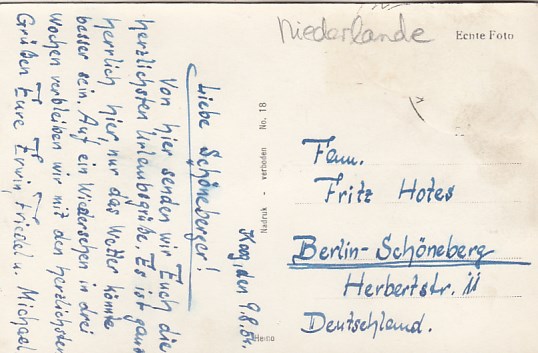 Niederlande
Echte Foto
Koog, den 9.8.64.
Liebe Schöneberger!
Von hier senden wir Euch die
herzlichsten Urlaubsgrüße. Es ist ganz
herrlich hier, nur das Wetter könnte
besser sein. Auf ein Wiedersehen in drei
Wochen verbleiben wir mit den herzlichsten
Grüßen Eure Erwin, Friedel u. Michael
Nadruk - verboden No. 18
Heino
Fam.
Fritz Hotes
Berlin-Schöneberg
Herbertstr. 11
Deutschland.